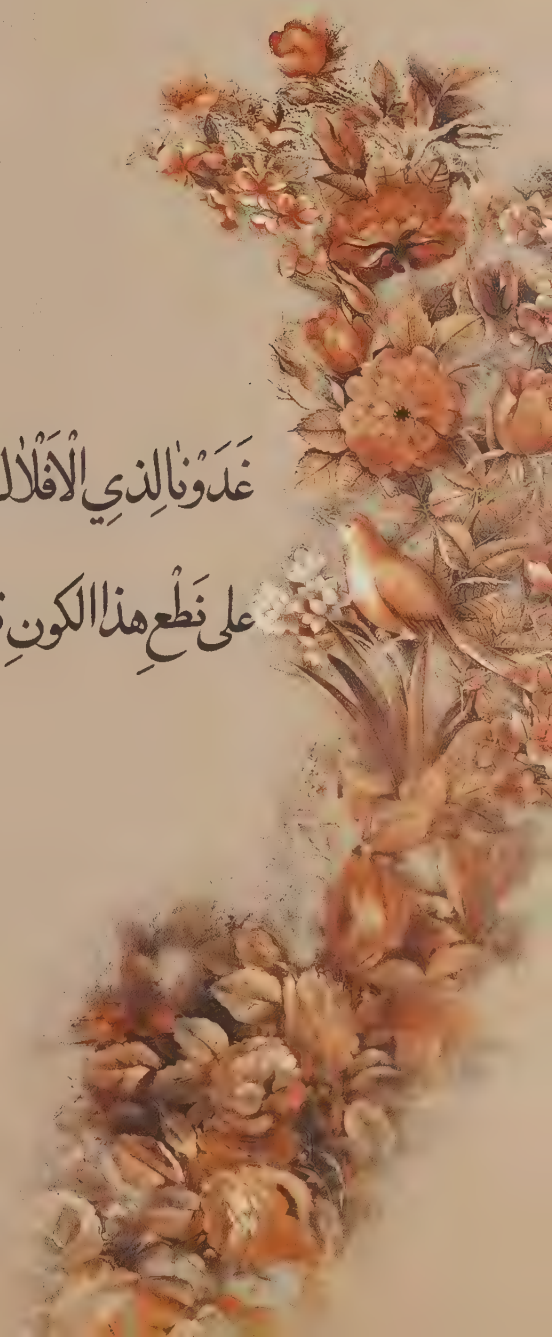 غَدَوْنٰا لِذيِ الْاَفْلٰال
على نَطْعِ هذا الكونِ